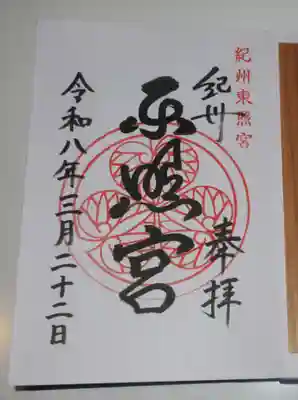 紀州東照宮
紀州
奉拝
東照宮
令和八年三月二十二日